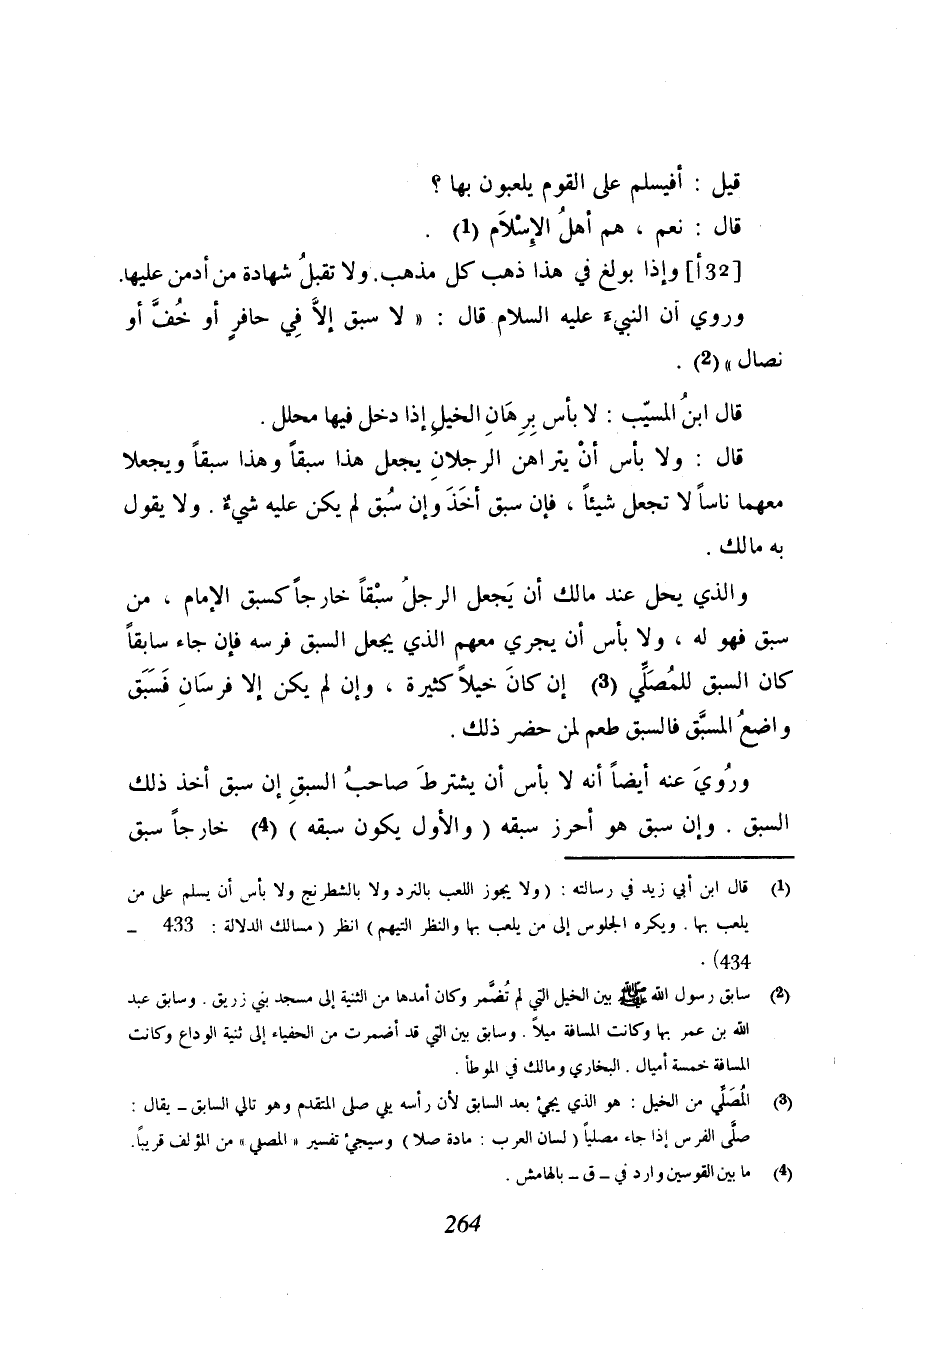 قيل : أفيسلم على القوم يلعبون بها ؟
قال : نعم ، هم أهلُ الإِسْلاَم (1) .
[32أ] وإذا بولغ في هذا ذهب كل مذهب. ولا تقبلُ شهادة من أدمن عليها.
وروي أن النبيء عليه السلام قال : « لا سبق إلاَّ فِي حافرٍ أو خُفَّ أو
نصال »(2) .
قال ابنُ المسيّب : لا بأس بِرِهَانِ الخيلِ إذا دخل فيها محلل .
قال : ولا بأس أنْ يتراهن الرجلانِ يجعل هذا سبقاً وهذا سبقاً ويجعلا
معهما ناساً لا تجعل شيئاً ، فإن سبق أخَذَ وإن سُبق لم يكن عليه شيءٌ . ولا يقول
به مالك .
والذي يحل عند مالك أن يَجعل الرجلُ سبْقاً خارجاً كسبق الإمام ، من
سبق فهو له ، ولا بأس أن يجري معهم الذي يجعل السبق فرسه فإن جاء سابقاً
كان السبق للمُصَلِّي (3) إن كانَ خيلاً كثيرة ، وإن لم يكن إلا فرسَانِ فَسَبَق
واضعُ المسبَّق فالسبق طعم لمن حضر ذلك .
ورُويَ عنه أيضاً أنه لا بأس أن يشترطَ صاحبُ السبقِ إن سبق أخذ ذلك
السبق . وإن سبق هو أحرز سبقه ( والأول يكون سبقه ) (4) خارجاً سبق
(1) قال ابن أبي زيد في رسالته : (ولا يجوز اللعب بالنرد ولا بالشطرنج ولا بأس أن يسلم على من
يلعب بها . ويكره الجلوس إلى من يلعب بها والنظر التيهم) انظر ( مسالك الدلالة : 433 –
434) .
(2) سابق رسول الله ﷺ بين الخيل التي لم تُضمَّر وكان أمدها من الثنية إلى مسجد بني زريق . وسابق عبد
الله بن عمر بها وكانت المسافة ميلاً . وسابق بين التي قد أضمرت من الحفياء إلى ثنية الوداع وكانت
المسافة خمسة أميال . البخاري ومالك في الموطأ .
(3) المُصَلِّي من الخيل : هو الذي يجيْ بعد السابق لأن رأسه يلي صلى المتقدم وهو تالي السابق – يقال :
صلَّى الفرس إذا جاء مصلياً ( لسان العرب : مادة صلا ) وسيجيْ تفسير « المصلي » من المؤلف قريباً.
(4) ما بين القوسين وارد في – ق – بالهامش .
264